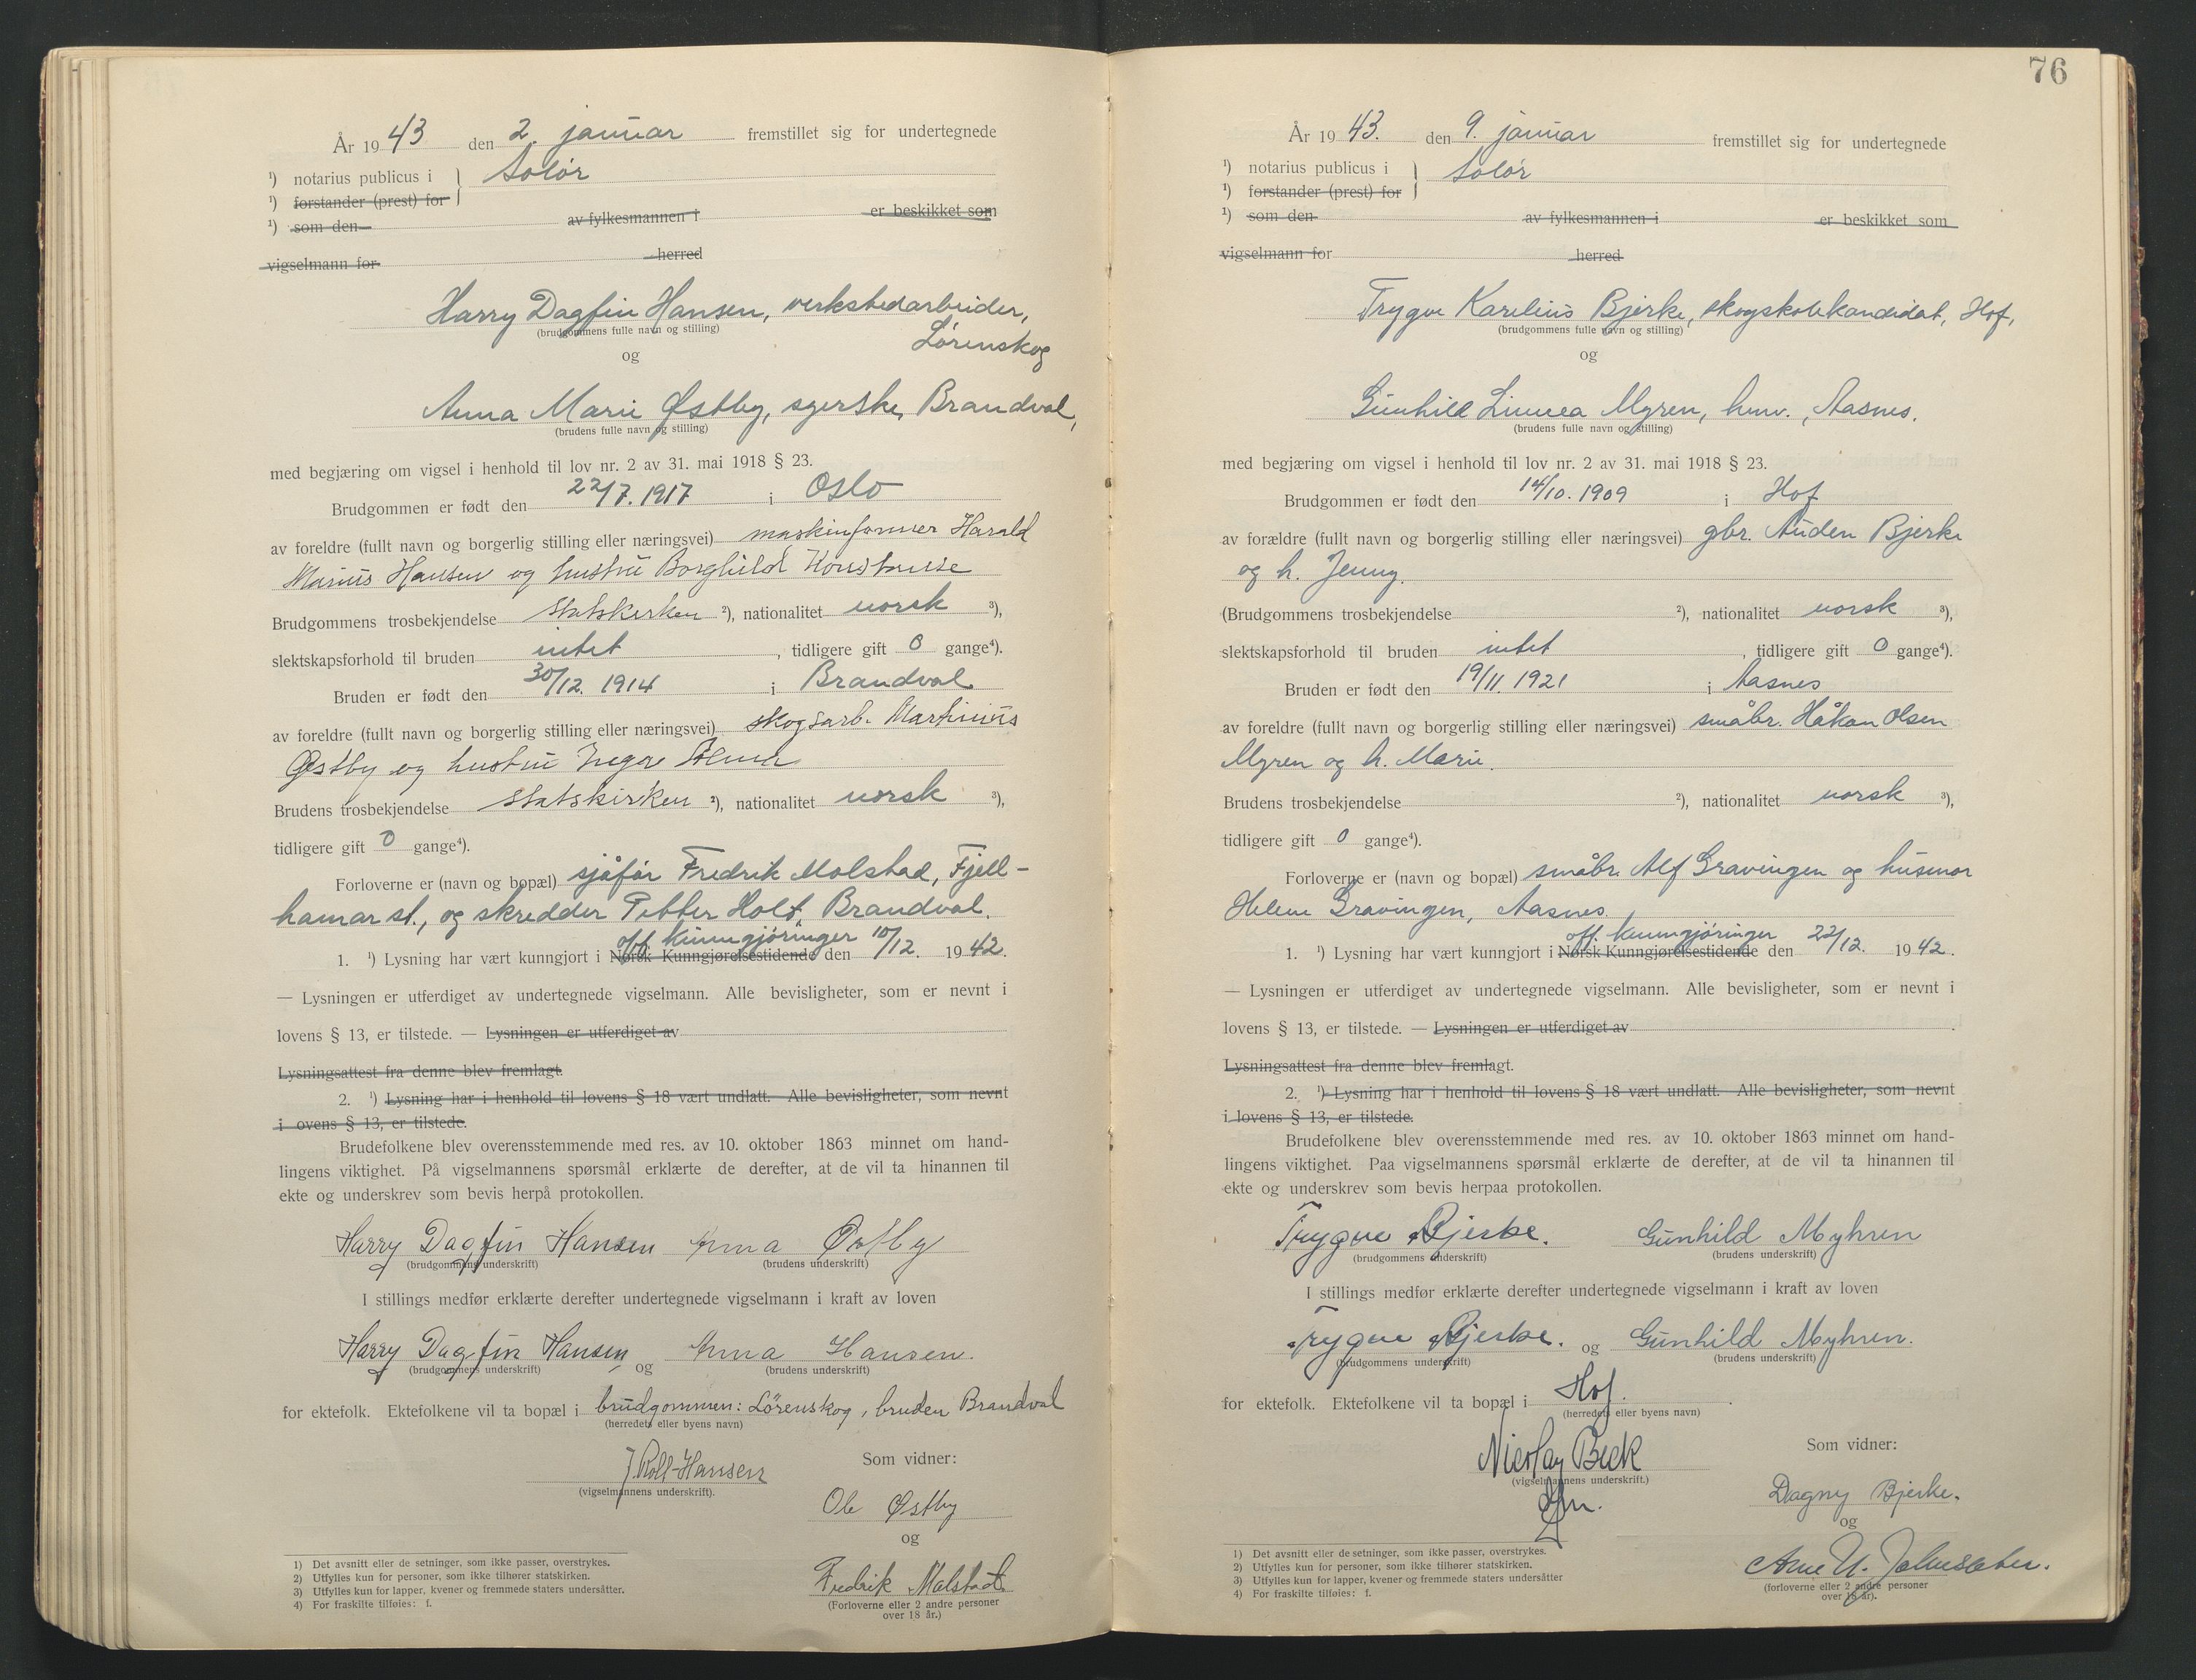 År 1943 den 2. januar fremstillet sig for undertegnede
¹) notarius publicus i } Solør
¹) forstander (prest) for
¹) som den av fylkesmannen i er beskikket som
vigselmann for herred
Harry Dagfin Hansen, verkstedarbeider,
(brudgommens fulle navn og stilling)
Lørenskog
og
Anna Marie Østby, syerske, Brandval,
(brudens fulle navn og stilling)
med begjæring om vigsel i henhold til lov nr. 2 av 31. mai 1918 § 23.
Brudgommen er født den 22/7. 1917 i Oslo
av foreldre (fullt navn og borgerlig stilling eller næringsvei) maskinformer Harald
Marius Hansen og hustru Borghild Konstanse
Brudgommens trosbekjendelse statskirken ²), nationalitet norsk ³),
slektskapsforhold til bruden intet, tidligere gift 0 gange⁴).
Bruden er født den 30/12. 1914 i Brandval
av foreldre (fullt navn og borgerlig stilling eller næringsvei) skogsarb. Martinius
Østby og hustru Inga
Brudens trosbekjendelse statskirken ²), nationalitet norsk ³),
tidligere gift 0 gange⁴).
Forloverne er (navn og bopæl) sjåfør Fredrik Molstad, Fjell-
hamar st., og skredder Petter Holt, Brandval.
off. kunngjøringer
1. ¹) Lysning har vært kunngjort i Norsk Kunngjørelsestidende den 10/12. 1942.
— Lysningen er utferdiget av undertegnede vigselmann. Alle bevisligheter, som er nevnt i
lovens § 13, er tilstede. — Lysningen er utferdiget av
Lysningsattest fra denne blev fremlagt.
2. ¹) Lysning har i henhold til lovens § 18 vært undlatt. Alle bevisligheter, som nevnt
i ovens § 13, er tilstede.
Brudefolkene blev overensstemmende med res. av 10. oktober 1863 minnet om hand-
lingens viktighet. På vigselmannens spørsmål erklærte de derefter, at de vil ta hinannen til
ekte og underskrev som bevis herpå protokollen.
Harry Dagfin Hansen Anna Østby
(brudgommens underskrift) (brudens underskrift)
I stillings medfør erklærte derefter undertegnede vigselmann i kraft av loven
Harry Dagfin Hansen og Anna Hansen.
(brudgommens underskrift) (brudens underskrift)
for ektefolk. Ektefolkene vil ta bopæl i brudgommen: Lörenskog, bruden Brandval
(herredets eller byens navn)
J. Roll-Hansen Som vidner:
(vigselmannens underskrift).
Ole Østby
og
Fredrik Malstad
(Forloverne eller 2 andre personer
over 18 år.)
1) Det avsnitt eller de setninger, som ikke passer, overstrykes.
2) Utfylles kun for personer, som ikke tilhører statskirken.
3) Utfylles kun for lapper, kvener og fremmede staters undersåtter.
4) For fraskilte tilføies: f.
76
År 1943. den 9. januar fremstillet sig for undertegnede
¹) notarius publicus i } Solør
¹) forstander (prest) for
¹) som den av fylkesmannen i er beskikket som
vigselmann for herred
Trygve Karelius Bjerke, skogskolekandidat, Hof,
(brudgommens fulle navn og stilling)
og
Gunhild Linnea Myren, hmv., Aasnes.
(brudens fulle navn og stilling)
med begjæring om vigsel i henhold til lov nr. 2 av 31. mai 1918 § 23.
Brudgommen er født den 14/10. 1909 i Hof
av forældre (fullt navn og borgerlig stilling eller næringsvei) gbr. Auden Bjerke
og h. Jenny.
(Brudgommens trosbekjendelse ²), nationalitet norsk ³),
slektskapsforhold til bruden intet, tidligere gift 0 gange⁴).
Bruden er født den 19/11. 1921 i Aasnes
av foreldre (fullt navn og borgerlig stilling eller næringsvei) småbr. Håkan Olsen
Myren og h. Marie.
Brudens trosbekjendelse ²), nationalitet norsk ³),
tidligere gift 0 gange⁴).
Forloverne er (navn og bopæl) småbr. Alf Gravingen og husmor
Helene Gravingen, Aasnes.
off. kunngjøringer
1. ¹) Lysning har vært kunngjort i Norsk Kunngjørelsestidende den 22/12. 1942.
— Lysningen er utferdiget av undertegnede vigselmann. Alle bevisligheter, som er nevnt i
lovens § 13, er tilstede. — Lysningen er utferdiget av .
Lysningsattest fra denne blev fremlagt.
2. ¹) Lysning har i henhold til lovens § 18 vært undlatt. Alle bevisligheter, som nevnt
i lovens § 13, er tilstede.
Brudefolkene blev overensstemmende med res. av 10. oktober 1863 minnet om hand-
lingens viktighet. Paa vigselmannens spørsmål erklærte de derefter, at de vil ta hinannen til
ekte og underskrev som bevis herpaa protokollen.
Trygve Bjerke. Gunhild Myhren
(brudgommens underskrift) (brudens underskrift)
I stillings medfør erklærte derefter undertegnede vigselmann i kraft av loven
Trygve Bjerke. og Gunhild Myhren.
(brudgommens underskrift) (brudens underskrift)
for ektefolk. Ektefolkene vil ta bopæl i Hof.
(herredets eller byens navn)
Nicolay Beck Som vidner:
(vigselmannens underskrift.)
Dagny Bjerke.
og
Arne U.
(forloverne eller 2 andre personer
over 18 år).
1) Det avsnitt eller de setninger, som ikke passer, overstrykes.
2) Utfylles kun for personer, som ikke tilhører statskirken.
3) Utfylles kun for lapper, kvener og fremmede staters undersåtter
4) For fraskilte tilføies: f.